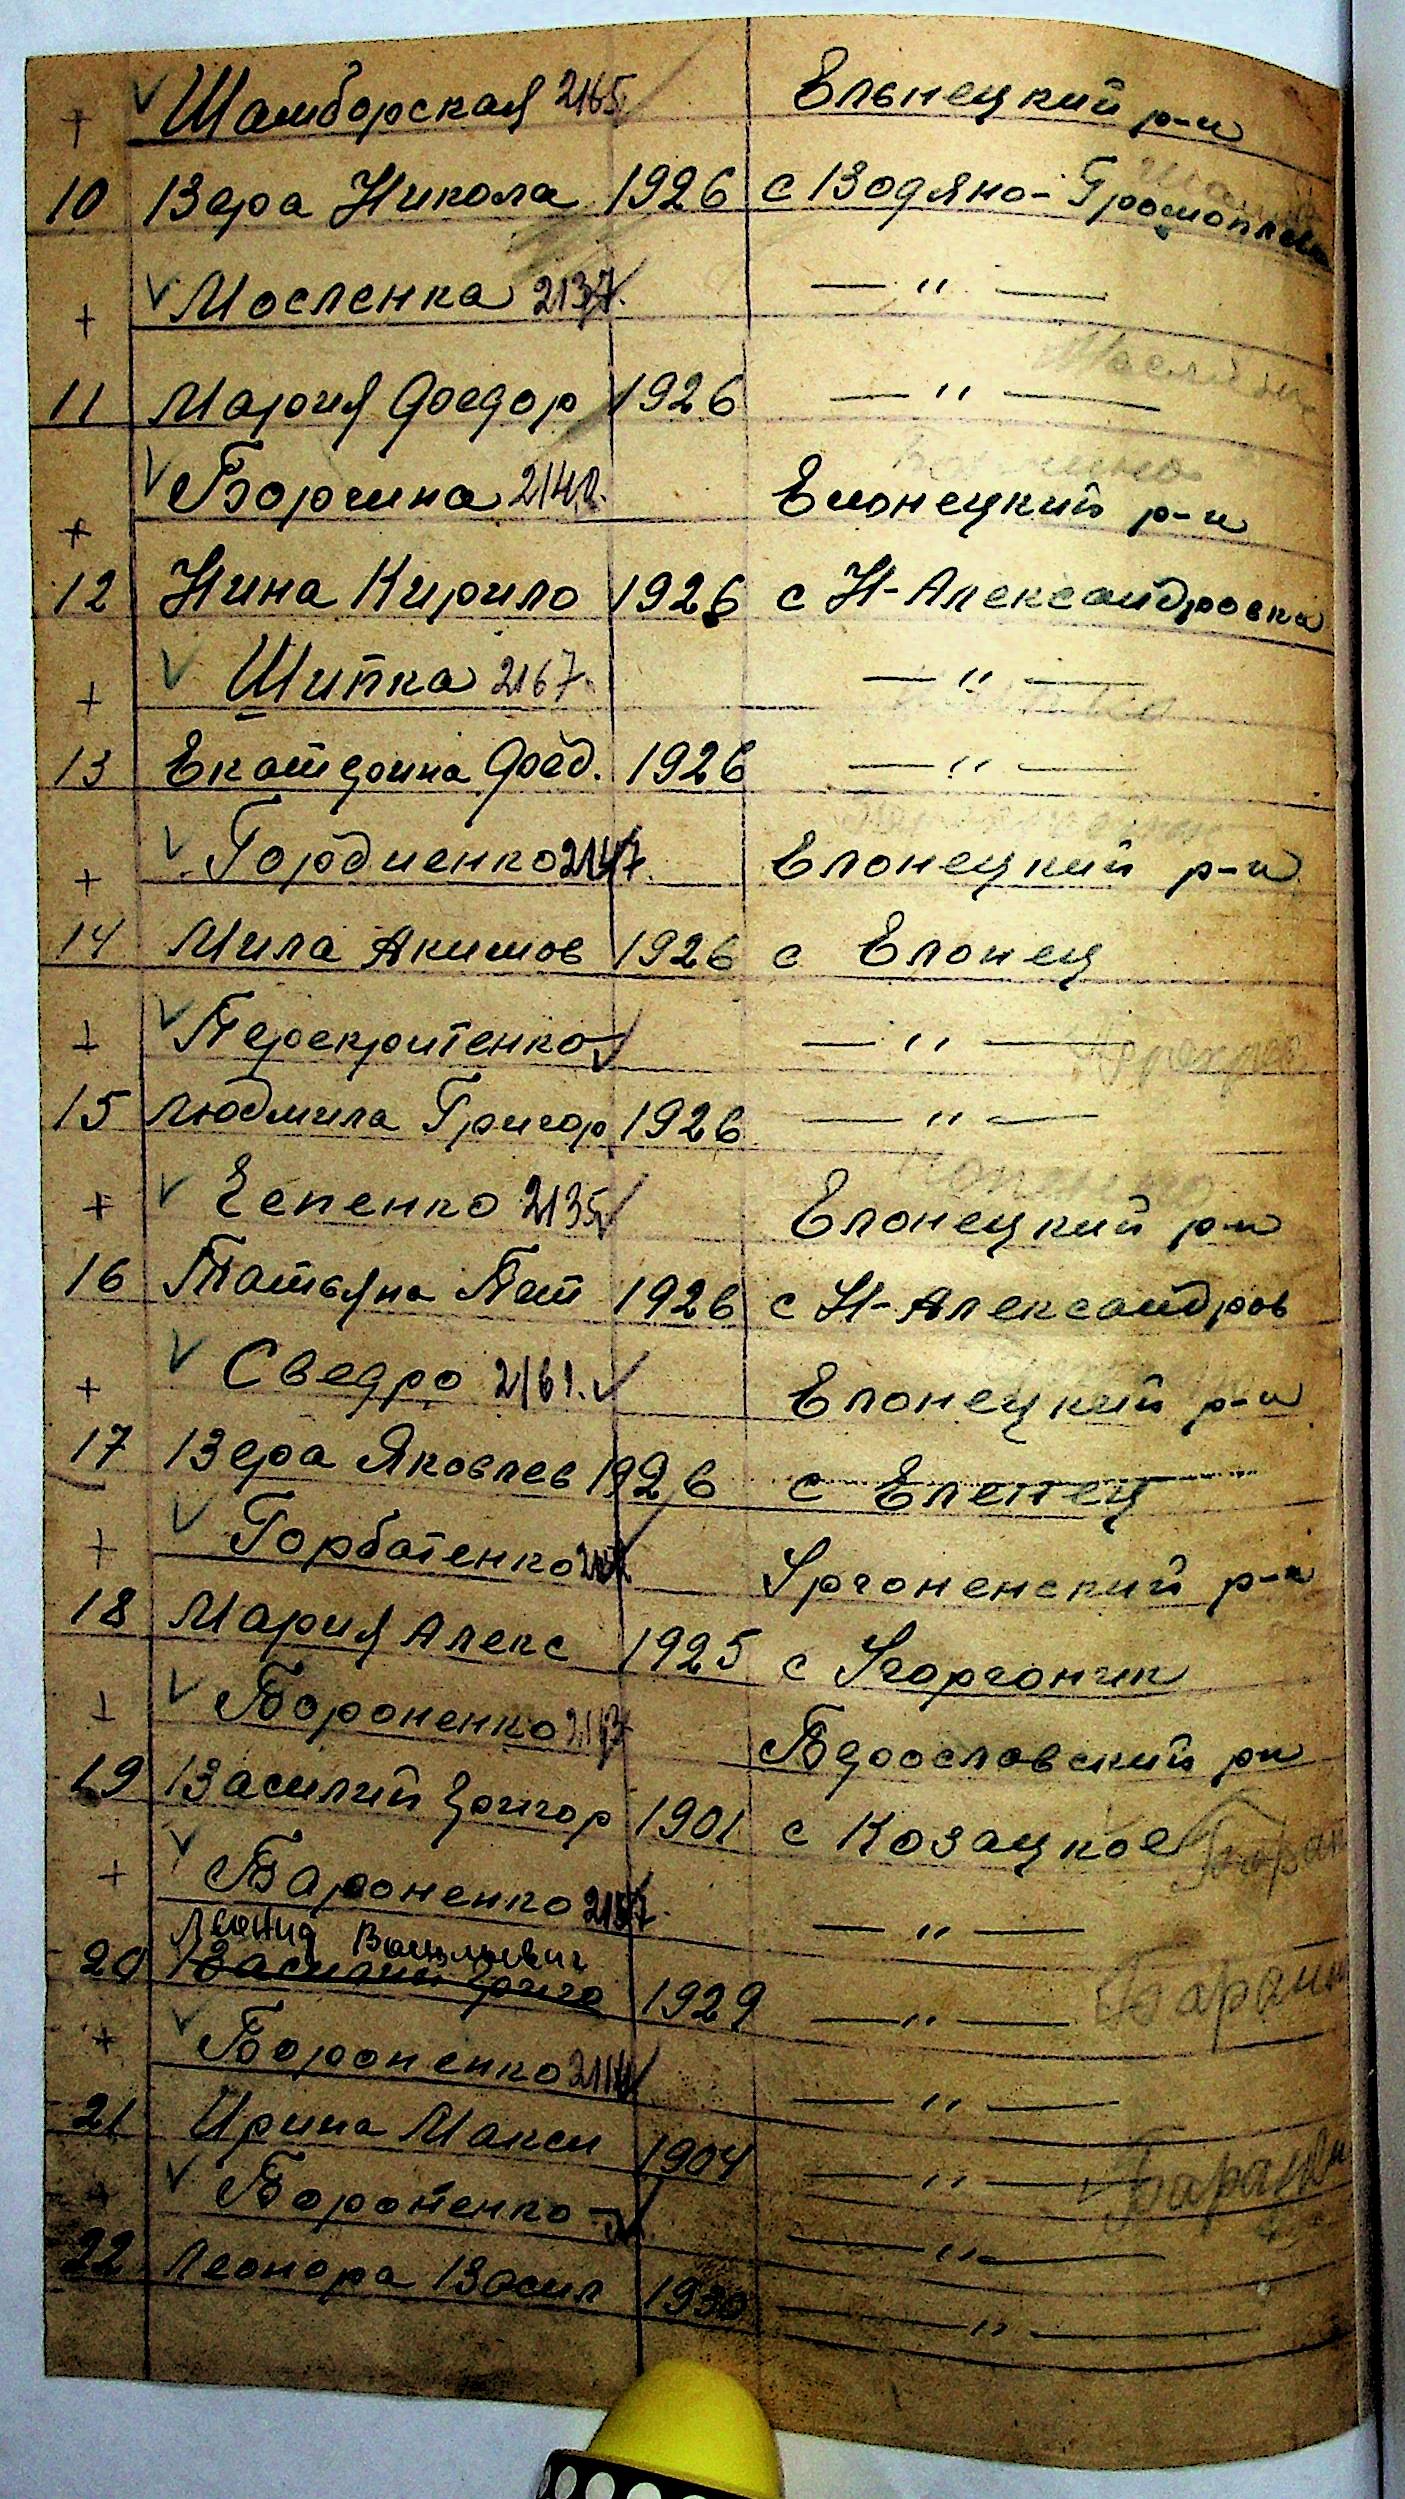 + ✓ Шамборская 2165 Ельнецкий р-н
10 Вера Никола 1926 с Водяно-
+ ✓ Мосленка 2137 — " —
11 Мария Федор 1926 — " —
+ ✓ Боргина Елонецкий р-н
12 Нина Кирило 1926 с Н-Александровка
+ ✓ Шипка 2167 — " —
13 Екатерина Фед. 1926 — " —
+ ✓ Гордиенко 2147 Елонецкий р-н
14 Мила Акимов 1926 с Елонец
+ ✓ Перекрытенко — " —
15 Людмила Григор 1926 — " —
+ ✓ Чепенко 2135 Елонецкий р-н
16 Татьяна Пет 1926 с Н-Александров
+ ✓ Сведро 2161. Елонецкий р-н
17 Вера Яковлев 1926 с Еленец
+ ✓ Горбатенко р-н
18 Мария Алекс 1925 с
+ ✓ Бороненко р-н
19 Василий Григор 1901 с Козацкое
+ ✓ Бароненко 2157 — " —
Леонид Васильевич
20 Василий Григо 1929 — " —
+ ✓ Бороненко — " —
21 Ирина Макси 1904 — " —
+ ✓ Бороненко — " —
22 Леонора Васил 1930 — " —